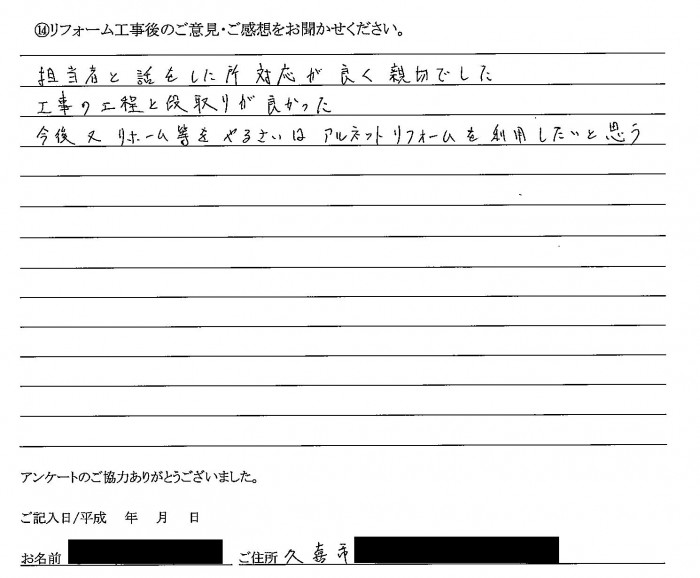 ⑭リフォーム工事後のご意見・ご感想をお聞かせください。
担当者と話をした所対応が良く親切でした
工事の工程と段取りが良かった
今後又リホーム等をやるさいはアルネットリフォームを利用したいと思う
アンケートのご協力ありがとうございました。
ご記入日/平成 年 月 日
お名前 ご住所 久喜市